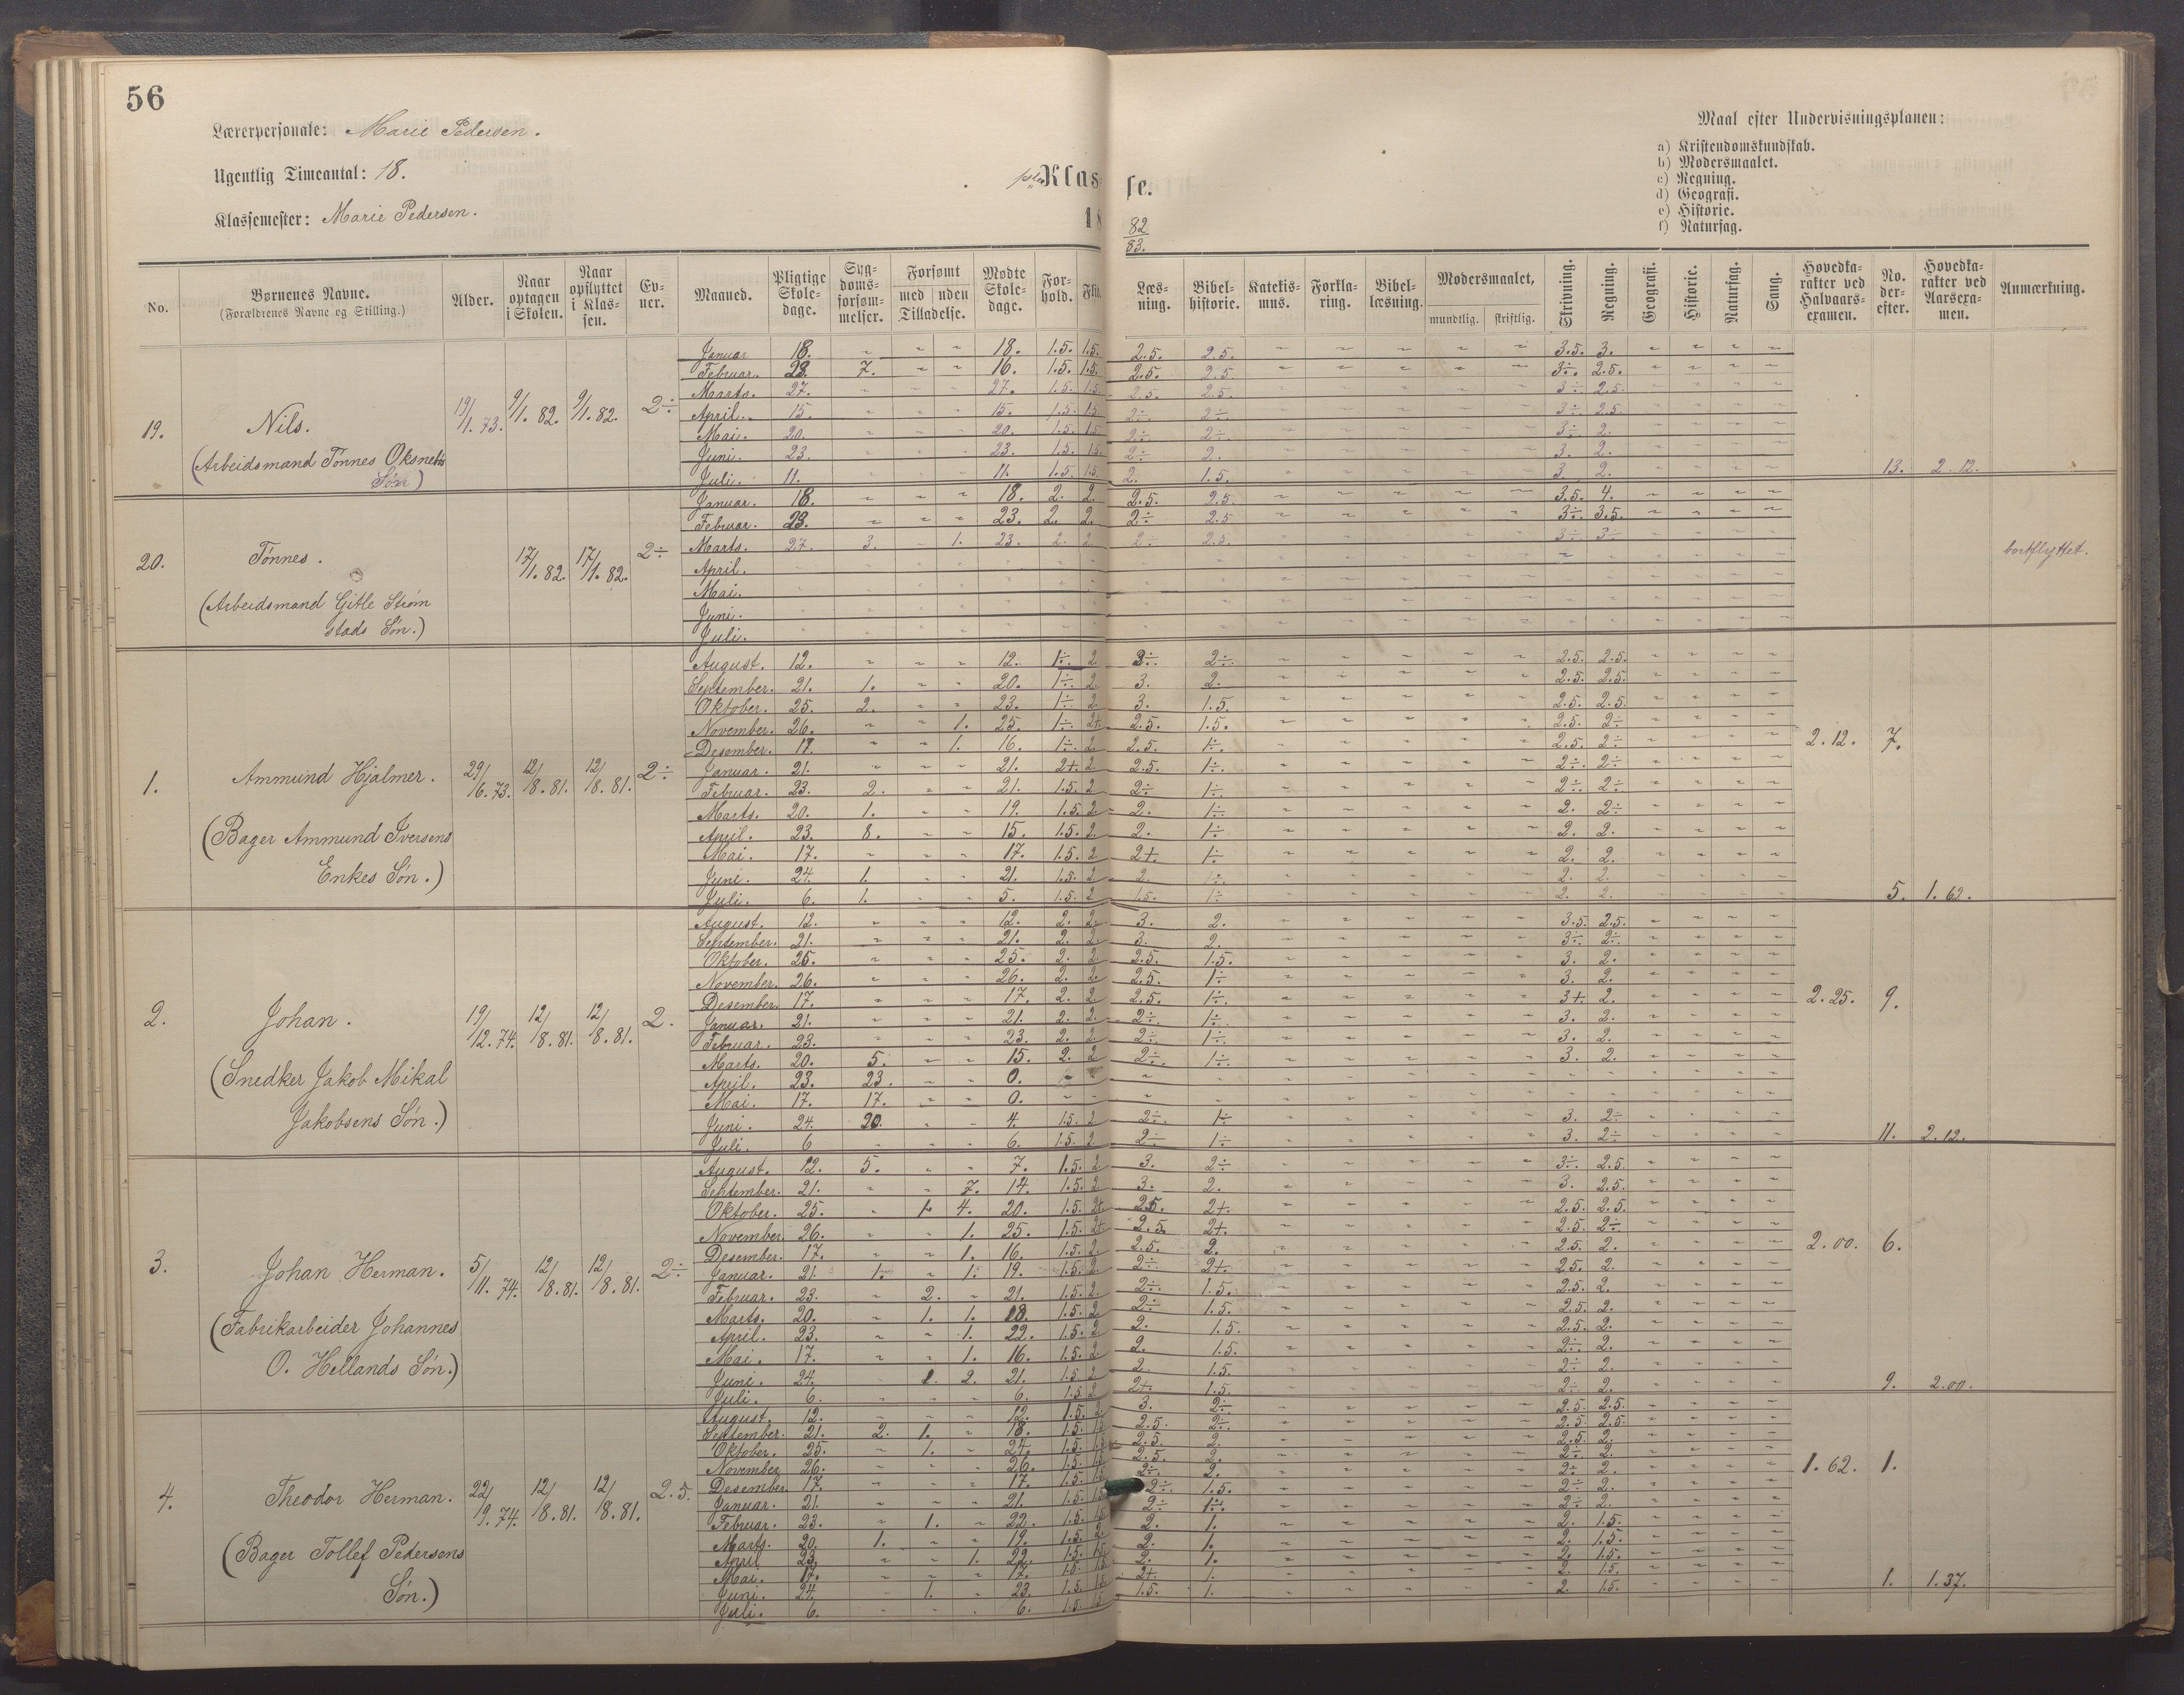 56
Lærerpersonale: Marie Pedersen.
Ugentlig Timeantal: 18.
Klassemester: Marie Pedersen.
1ste Klasse.
18 82/83.
Maal efter Undervisningsplanen:
a) Kristendomskundskab.
b) Modersmaalet.
c) Regning.
d) Geografi.
e) Historie.
f) Naturfag.
No. | Børnenes Navne. (Forældrenes Navne og Stilling.) | Alder. | Naar optagen i Skolen. | Naar opflyttet i Klassen. | Evner. | Maaned. | Pligtige Skoledage. | Sygdomsforsømmelser. | Forsømt med Tilladelse. | uden Tilladelse. | Mødte Skoledage. | Forhold. | Flid. | Læsning. | Bibelhistorie. | Katekismus. | Forklaring. | Bibellæsning. | Modersmaalet, mundtlig. | skriftlig. | Skrivning. | Regning. | Geografi. | Historie. | Naturfag. | Sang. | Hovedkarakter ved Halvaarsexamen. | No. derefter. | Hovedkarakter ved Aarsexamen. | Anmærkning.
19. Nils. 19/1.73. 9/1.82. 9/1.82. 2÷
(Arbeidsmand Tønnes Oksnebs Søn)
Januar 18. " " " 18. 1.5. 1.5. 2.5. 2.5. 3.5. 3.
Februar. 23. 7. " " 16. 1.5. 1.5. 2.5. 2.5. 3÷. 2.5.
Marts. 27. " " " 27. 1.5. 1.5. 2.5. 2.5. 3÷ 2.5.
April. 15. " " " 15. 1.5. 1.5. 2÷ 2÷. 3÷. 2.5.
Mai. 20. " " " 20. 1.5. 1.5 2÷ 2÷. 3÷. 2.
Juni. 23. " " " 23. 1.5. 1.5. 2÷ 2. 3. 2.
Juli. 11. " " " 11. 1.5. 1.5. 2. 1.5. 3. 2. 13. 2.12.
20. Tønnes. 17/1.82. 17/1.82. 2÷
(Arbeidsmand Gitle Strømstads Søn.)
Januar. 18. " " " 18. 2. 2. 2.5. 2.5. 3.5. 4.
Februar. 23. " " " 23. 2. 2. 2÷ 2.5 3÷. 3.5.
Marts. 27. 3. " 1. 23. 2. 2 2÷ 2.5. 3÷ 3÷ bortflyttet.
April.
Mai.
Juni.
Juli.
1. Ammund Hjalmer. 29/6.73. 12/8.81. 12/8.81. 2÷
(Bager Ammund Iversens
Enkes Søn.)
August. 12. " " " 12. 1÷. 2. 3÷. 2÷. 2.5. 2.5.
September. 21. 1. " " 20. 1÷. 2. 3. 2. 2.5. 2.5.
Oktober. 25. 2. " " 23. 1÷. 2 3. 1.5. 2.5. 2.5.
November. 26. " " 1. 25. 1÷. 2+. 2.5. 1.5. 2.5. 2÷
Desember. 17. " " 1. 16. 1÷. 2 2.5. 1÷. 2.5. 2÷ 2.12. 7.
Januar. 21. " " " 21. 2+. 2. 2.5. 1÷. 2÷. 2÷
Februar. 23. 2. " " 21. 1.5. 2 2÷ 1÷. 2÷. 2÷
Marts. 20. 1. " " 19. 1.5. 2 2. 1÷. 2. 2÷
April. 23. 8. " " 15. 1.5. 2. 2. 1÷ 2. 2.
Mai. 17. " " " 17. 1.5. 2 2+. 1÷ 2. 2.
Juni. 24. 1. " " 21. 1.5. 2 2. 1÷. 2. 2.
Juli. 6. 1. " " 5. 1.5. 2 1.5. 1÷ 2. 2. 5. 1.62.
2. Johan. 19/12.74. 12/8.81. 12/8.81. 2.
(Snedker Jakob Mikal
Jakobsens Søn.)
August. 12. " " " 12. 2. 2. 3. 2. 3.5. 2.5.
September. 21. " " " 21. 2. 2. 3. 2. 3÷. 2÷.
Oktober. 25. " " " 25. 2. 2. 2.5. 1.5. 3. 2.
November. 26. " " " 26. 2. 2. 2.5. 1÷ 3. 2.
Desember. 17. " " " 17. 2. 2 2.5. 1÷. 3+. 2. 2.25. 9.
Januar. 21. " " " 21. 2. 2. 2÷. 1÷. 3. 2.
Februar. 23. " " " 23. 2. 2. 2÷ 1÷. 3. 2.
Marts. 20. 5. " " 15. 2. 2 2÷. 1÷. 3. 2.
April. 23. 23. " " 0.
Mai. 17. 17. " " 0.
Juni. 24. 20. " " 4. 1.5. 2 2÷. 1÷ 3. 2÷
Juli. 6 " " " 6. 1.5. 2. 2÷ 1÷. 3. 2÷ 11. 2.12.
3. Johan Herman. 5/11.74. 12/8.81. 12/8.81. 2÷
(Fabrikarbeider Johannes
O. Hellands Søn.)
August. 12. 5. " " 7. 1.5. 2 3. 2÷ 3÷. 2.5.
September. 21. " " 7. 14. 1.5. 2. 3. 2. 3. 2.5.
Oktober. 25. " 1. 4. 20. 1.5. 2+ 2.5. 2+. 2.5. 2.5.
November. 26. " " 1. 25. 1.5. 2+ 2.5. 2+. 2.5. 2÷.
Desember. 17. " " 1. 16. 1.5. 2. 2.5. 2. 2.5. 2. 2.00. 6.
Januar. 21. 1. " 1. 19. 1.5. 2. 2÷. 2+. 2.5. 2.
Februar. 23. " 2. " 21. 1.5. 2. 2÷. 1.5. 2.5. 2.
Marts. 20. " 1. 1. 18. 1.5. 2 2÷ 1.5. 2.5. 2.
April. 23. " " 1. 22. 1.5. 2 2. 1.5. 2.5. 2.
Mai. 17. " " 1. 16. 1.5. 2. 2. 1.5. 2÷. 2.
Juni. 24. 1. 2. 21. 1.5 2 2. 1.5. 2÷ 2.
Juli. 6. " " " 6. 1.5 2 2+. 1.5. 2÷ 2. 9. 2.00.
4. Theodor Herman. 22/9.74. 12/8.81. 12/8.81. 2.5.
(Bager Tollef Pedersens
Søn.)
August. 12. " " " 12. 1.5. 2. 3. 2÷ 2.5. 2.5.
September. 21. 2. 1. " 18. 1.5. 1.5 2.5. 2÷. 2.5. 2.5.
Oktober. 25. " 1. " 24. 1.5. 1.5 2.5. 2. 2.5. 2.
November 26. " " " 26. 1.5. 1.5 2.5. 2. 2÷. 2.
Desember 17. " " " 17. 1.5. 1.5 2÷. 2. 2÷ 2. 1.62. 1.
Januar. 21. " " " 21. 1.5. 1.5 2÷. 1.5. 2÷ 2.
Februar. 23. " 1. " 22. 1.5. 1.5 2÷ 1÷. 2÷ 2.
Marts. 20. 1. " " 19. 1.5. 2 2. 1. 2. 1.5.
April 23. " " 1. 22. 1.5. 1.5 2. 1. 2. 1.5.
Mai. 17. " " " 17. 1.5 1.5 2. 1. 2. 1.5.
Juni. 24. " 1. " 23. 1.5. 1.5 2+. 1. 2. 1.5.
Juli. 6. " " " 6. 1.5. 1.5 1.5. 1. 2. 1.5. 1. 1.37.